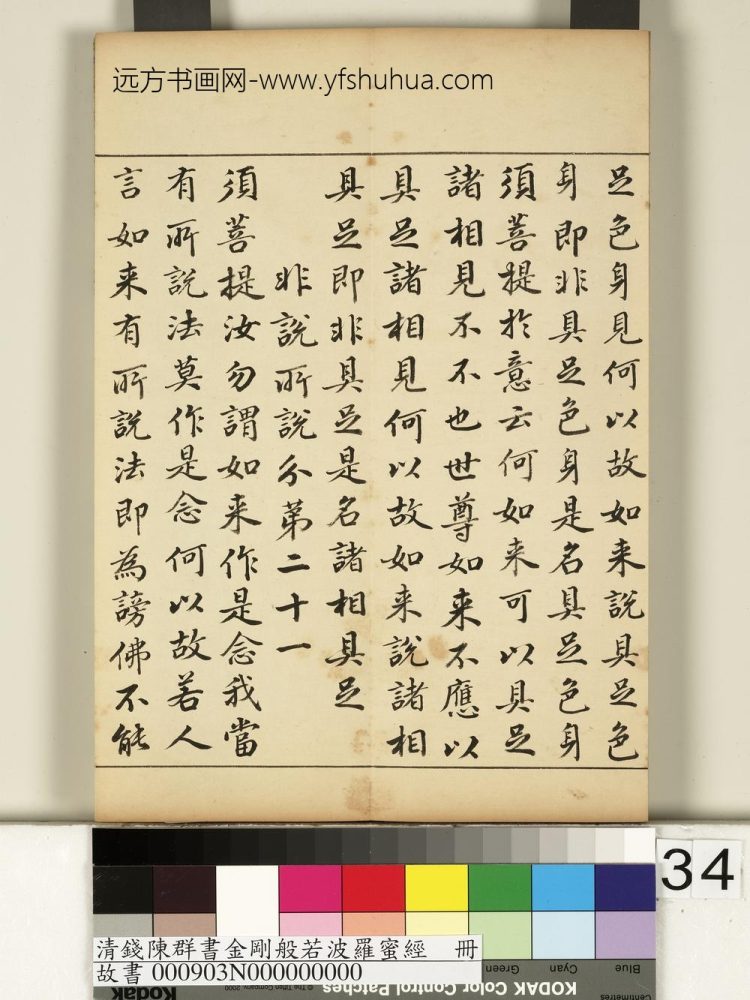 远方书画网-www.yfshuhua.com
足色身見何以故如来說具足色
身即非具足色身是名具足色身
須菩提於意云何如来可以具足
諸相見不不也世尊如来不應以
具足諸相見何以故如来說諸相
具足即非具足是名諸相具足
非說所說分第二十一
須菩提汝勿謂如来作是念我當
有所說法莫作是念何以故若人
言如来有所說法即為謗佛不能
34
清錢陳群書金剛般若波羅蜜經 冊
故書 000903N000000000
Blue
Cyan
Green
Centimetres
KODAK Color Control Patches
Kodak
© The Tiffen Company, 2000